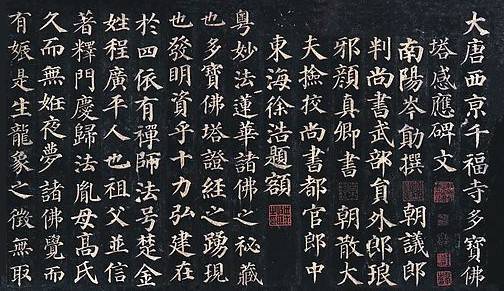 大唐西京千福寺多寶佛
塔感應碑文
南陽岑勛撰 朝議郎
判尚書武部員外郎琅
邪顏真卿書 朝散大
夫撿校尚書都官郎中
東海徐浩題額
粵妙法蓮華諸佛之秘藏
也多寶佛塔證經之踴現
也發明資乎十力弘建在
於四依有禪師法号楚金
姓程廣平人也祖父並信
著釋門慶歸法胤母高氏
久而無妊夜夢諸佛覺而
有娠是生龍象之徵無取